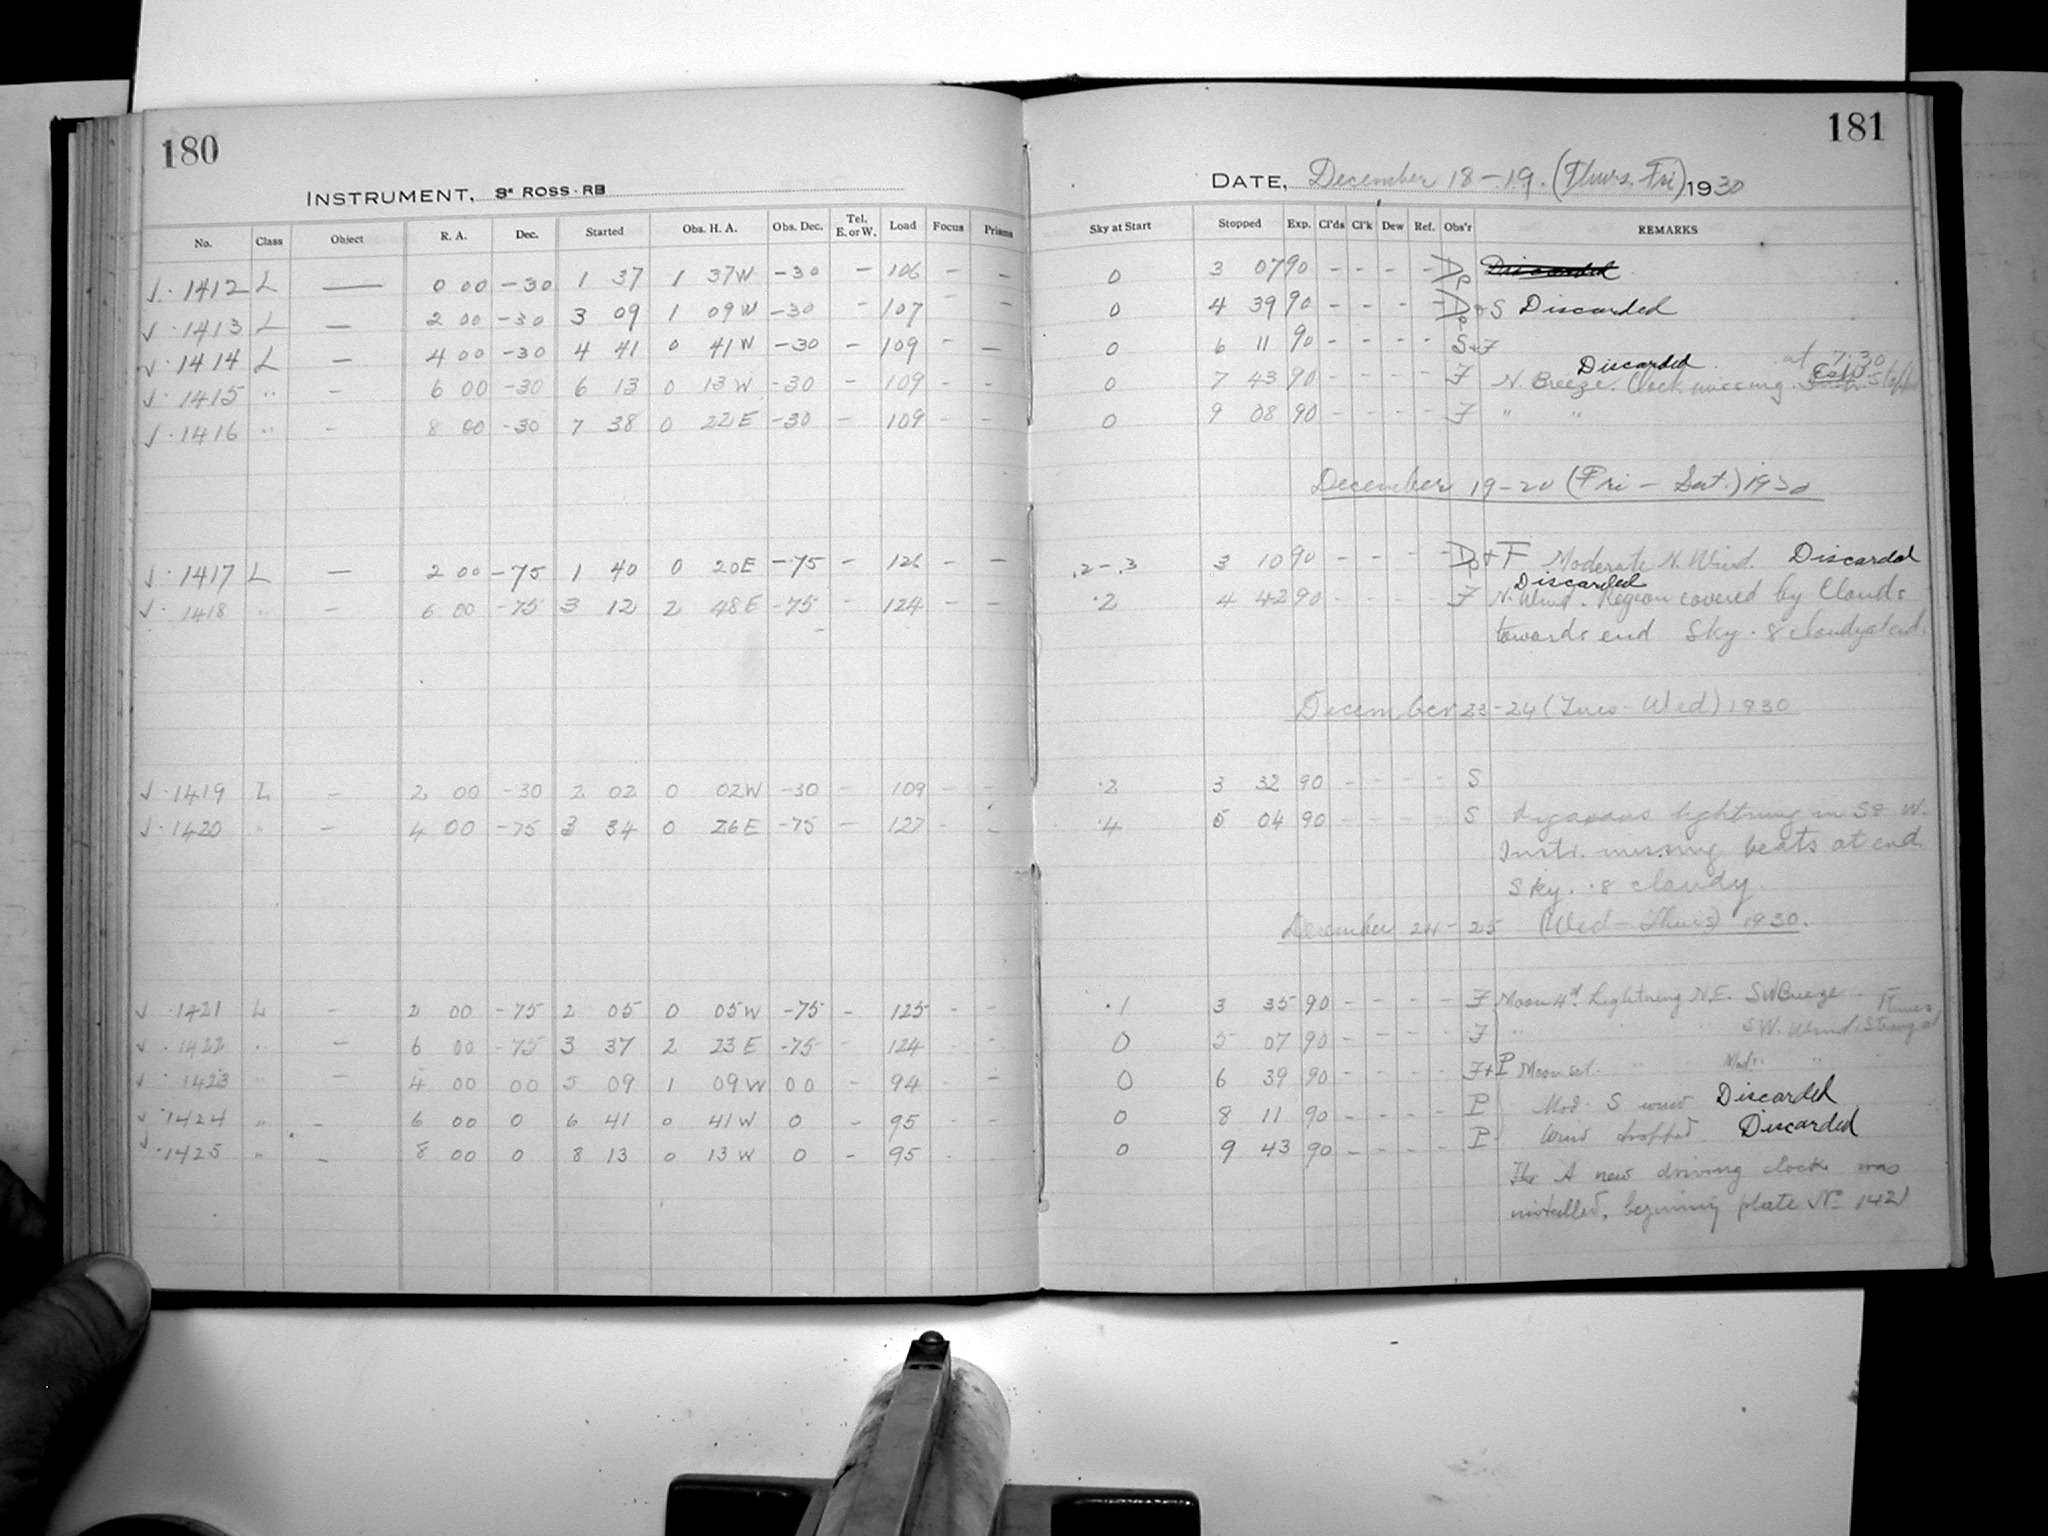 180
INSTRUMENT, 3" ROSS-RB
No. Class Object R. A. Dec. Started Obs. H. A. Obs. Dec. Tel. E. or W. Load Focus Prisms
√ · 1412 L — 0 00 -30 1 37 1 37W -30 - 106 - -
√ · 1413 L — 2 00 -30 3 09 1 09W -30 - 107 - -
√ · 1414 L — 4 00 -30 4 41 0 41W -30 - 109 - -
√ · 1415 " - 6 00 -30 6 13 0 13W -30 - 109 - -
√ · 1416 " - 8 00 -30 7 38 0 22E -30 - 109 - -
√ · 1417 L — 2 00 -75 1 40 0 20E -75 - 126 - -
√ · 1418 " - 6 00 -75 3 12 2 48E -75 - 124 - -
√ · 1419 L - 2 00 -30 2 02 0 02W -30 - 109 - -
√ · 1420 " - 4 00 -75 3 34 0 26E -75 - 127 - -
√ · 1421 L - 2 00 -75 2 05 0 05W -75 - 125 - -
√ · 1422 " - 6 00 -75 3 37 2 23E -75 - 124 - -
√ · 1423 " - 4 00 00 5 09 1 09W 00 - 94 - -
√ · 1424 " - 6 00 0 6 41 0 41W 0 - 95 - -
√ · 1425 " - 8 00 0 8 13 0 13W 0 - 95 - -
181
DATE, December 18-19. (Thurs. Fri) 1930
Sky at Start Stopped Exp. Cl'ds Cl'k Dew Ref. Obs'r REMARKS
0 3 07 90 - - - - Dp Discarded
0 4 39 90 - - - - Dp+S Discarded
0 6 11 90 - - - - S+F
Discarded at 7:30
0 7 43 90 - - - - F N. Breeze. Clock missing.
0 9 08 90 - - - - F " "
December 19-20 (Fri - Sat.) 1930
.2-.3 3 10 90 - - - - Dp+F Moderate N. Wind. Discarded
Discarded
.2 4 42 90 - - - - F N. Wind. Region covered by Clouds
towards end Sky .8 cloudy at end.
December 23-24 (Tues-Wed) 1930
.2 3 32 90 - - - - S
.4 5 04 90 - - - - S lightning in S & W.
Instr. missing beats at end
Sky. .8 cloudy.
December 24-25 (Wed-Thurs) 1930.
.1 3 35 90 - - - - F Moon 4d. Lightning N.E. SW Breeze
0 5 07 90 - - - - F " " SW. Wind. Strong at times
0 6 39 90 - - - - F+P Moon set. " Mod. "
0 8 11 90 - - - - P Mod. S wind Discarded
0 9 43 90 - - - - P Wind dropped. Discarded
The A new driving clock was
installed, beginning plate No 1421